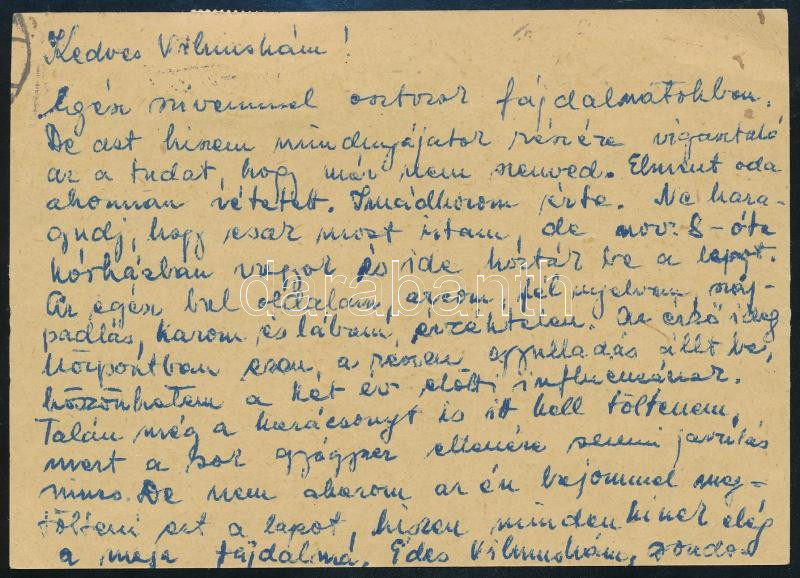 Kedves Vilmuskám!
Egész szivemmel osztozok fájdalmatokban.
De azt hiszem mindnyájatok részére vigasztaló
az a tudat, hogy már nem szenved. Elment oda
ahonnan vétetett. Imádkozom érte. Ne hara-
gudj, hogy csak most irtam, de nov. 8-óta
kórházban vagyok és ide hozták be a lapot.
Az egész bal oldalam, arcom, fél nyelvem, száj-
padlás, karom és lábam, érzéktelen. Az érző ideg
központban ezen a részen gyulladás állt be,
köszönhetem a két év előtti influenzának.
Talán még a karácsonyt is itt kell töltenem,
mert a sok gyógyszer ellenére semmi javulás
nincs. De nem akarom az én bajommal meg-
tölteni ezt a lapot, hiszen mindenkinek elég
a maga fájdalma. Édes Vilmuskám,
darabanth